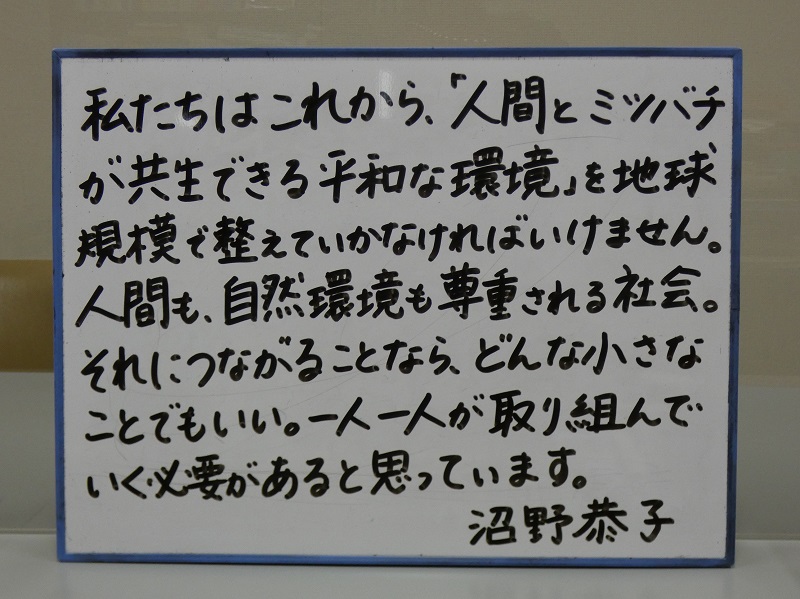 私たちはこれから、「人間とミツバチ
が共生できる平和な環境」を地球
規模で整えていかなければいけません。
人間も、自然環境も尊重される社会。
それにつながることなら、どんな小さな
ことでもいい。一人一人が取り組んで
いく必要があると思っています。
沼野恭子